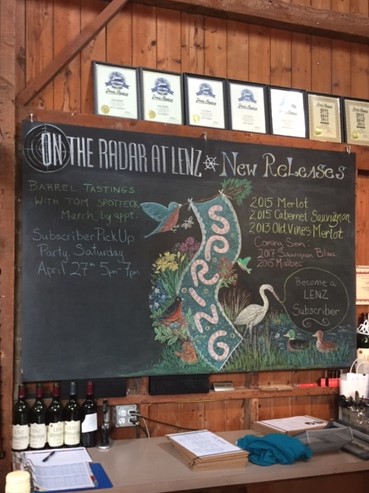 ON THE RADAR AT LENZ New Releases
BARREL TASTINGS
WITH TOM SPOTTECK
March, by appt.
Subscriber Pick Up
Party Saturday
April 27th 5pm-7pm
SPRING
2015 Merlot
2015 Cabernet Sauvignon
2013 Old Vines Merlot
Coming Soon:
2017 Sauvignon Blanc
2015 Malbec
Become a
LENZ
Subscriber